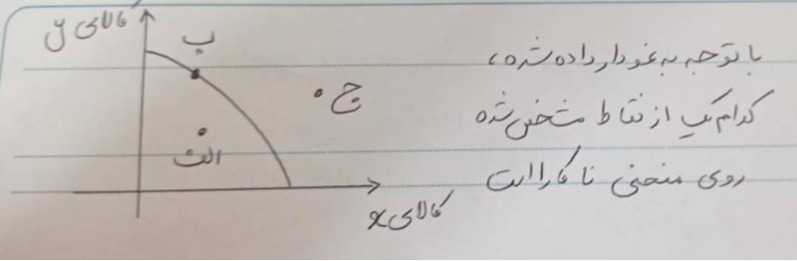 کالای y
ب
ج
الف
کالای x
با توجه به نمودار داده شده،
کدام یک از نقاط مشخص شده
روی منحنی ناکارا است